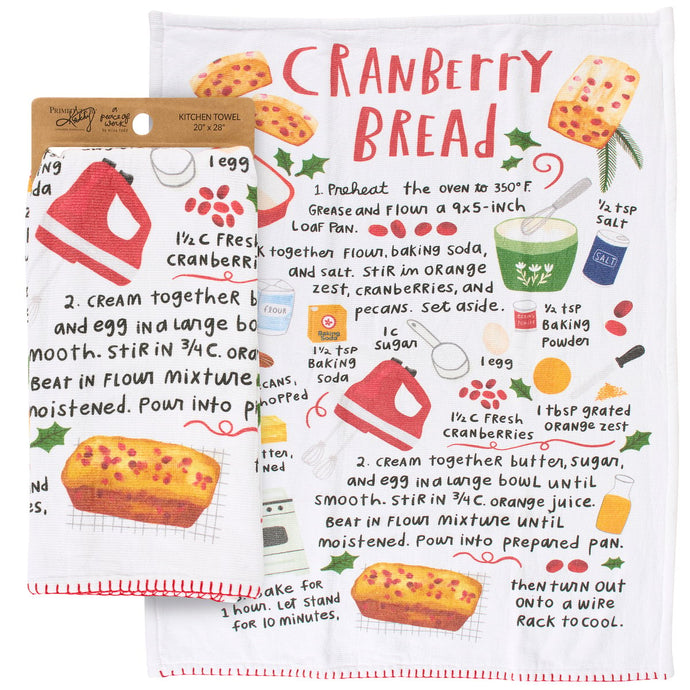 PRIMITIVES
by Kathy
a peace of work
KITCHEN TOWEL
20" x 28"
1 egg
1½ C FRESH
CRANBERRIES
2. CREAM together b
and egg in a large bo
smooth. Stir in ¾ C. ora
Beat in flour mixture
moistened. Pour into prepa
CRANBERRY
BREAD
1. Preheat the oven to 350°F.
Grease and flour a 9x5-inch
loaf pan.
k together flour, baking soda,
and salt. Stir in orange
zest, cranberries, and
pecans. Set aside.
½ tsp
SALT
SALT
FLOUR
Baking
Soda
1½ tsp
BAKING
SODA
1 C
SUGAR
1 egg
½ tsp
BAKING
POWDER
1½ C FRESH
CRANBERRIES
1 tbsp grated
orange zest
CANS,
hopped
tter,
ned
2. CREAM together butter, sugar,
and egg in a large bowl until
smooth. Stir in ¾ C. orange juice.
Beat in flour mixture until
moistened. Pour into prepared pan.
nd
es,
ake for
1 hour. Let stand
for 10 minutes,
then turn out
onto a wire
rack to cool.